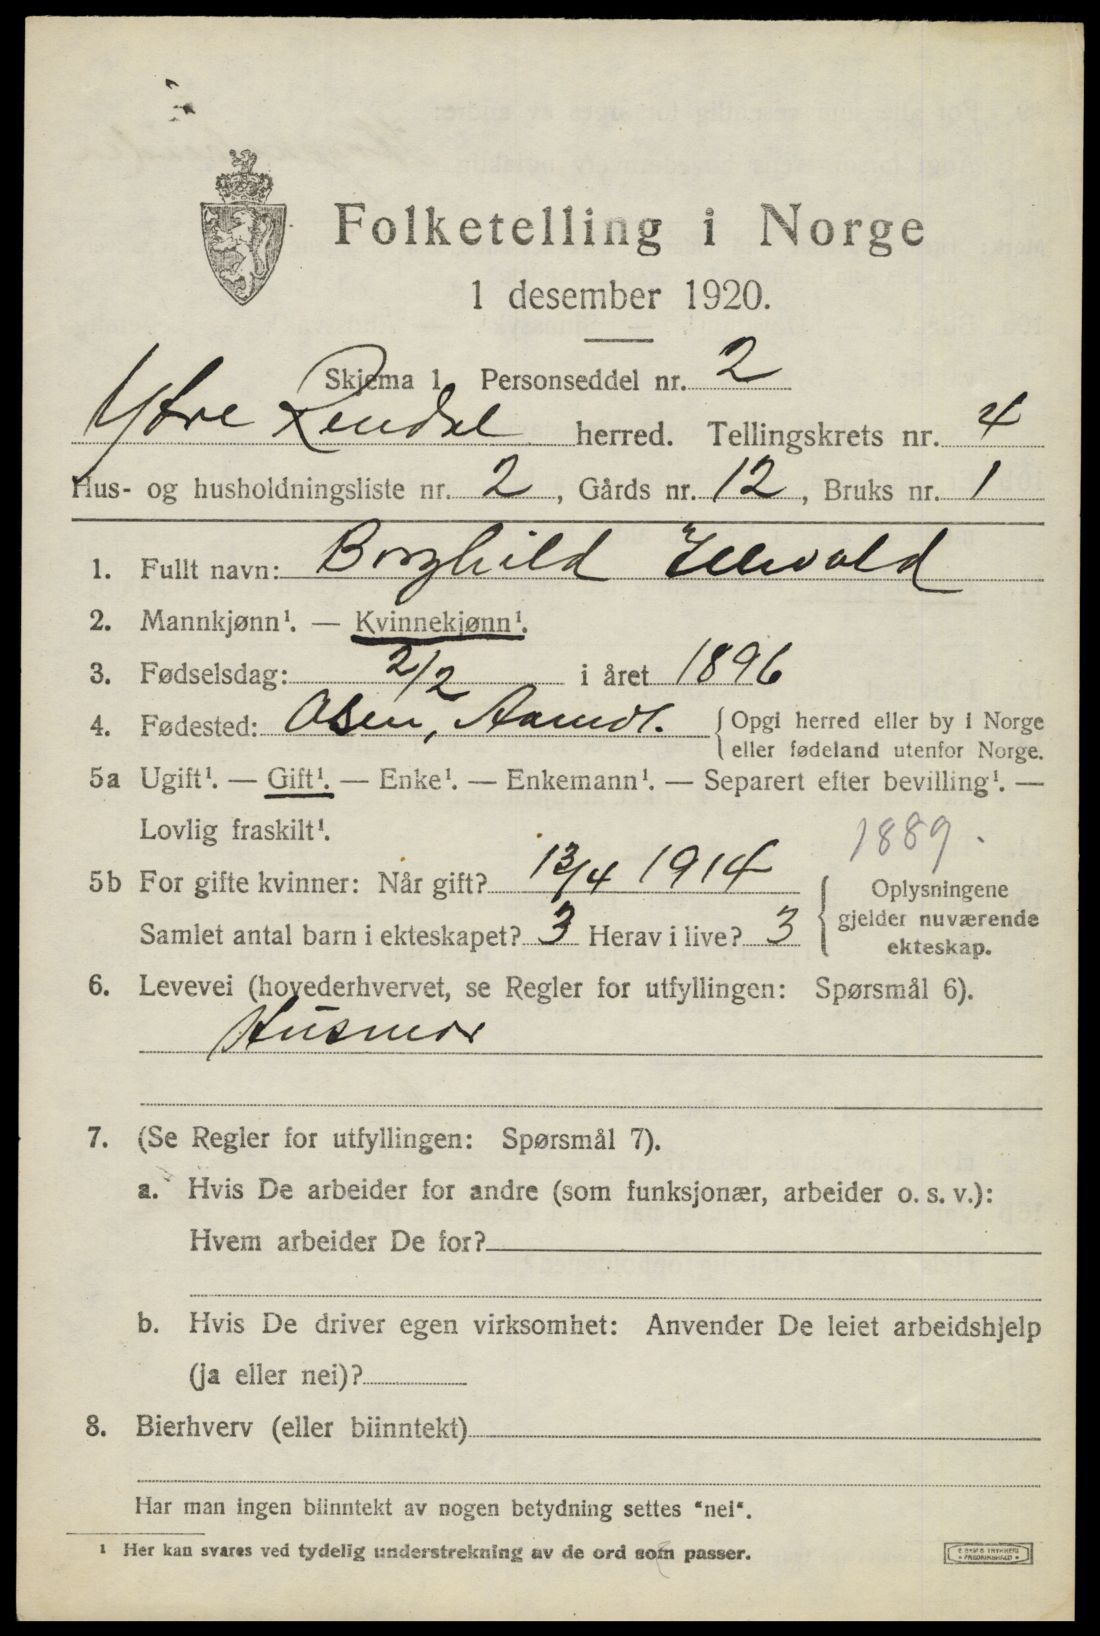 Folketelling i Norge
1 desember 1920.
Skjema 1. Personseddel nr. 2
Ytre Rendal herred. Tellingskrets nr. 4
Hus- og husholdningsliste nr. 2, Gårds nr. 12, Bruks nr. 1
1. Fullt navn: Borghild Ellevold
2. Mannkjønn¹. — Kvinnekjønn¹.
3. Fødselsdag: 2/2 i året 1896
4. Fødested: Osen, Aamot. { Opgi herred eller by i Norge
eller fødeland utenfor Norge.
5a Ugift¹. — Gift¹. — Enke¹. — Enkemann¹. — Separert efter bevilling¹. —
Lovlig fraskilt¹.
1889.
5b For gifte kvinner: Når gift? 13/4 1914
Samlet antal barn i ekteskapet? 3 Herav i live? 3
{ Oplysningene
gjelder nuværende
ekteskap.
6. Levevei (hovederhvervet, se Regler for utfyllingen: Spørsmål 6).
Husmor
7. (Se Regler for utfyllingen: Spørsmål 7).
a. Hvis De arbeider for andre (som funksjonær, arbeider o. s. v.):
Hvem arbeider De for?
b. Hvis De driver egen virksomhet: Anvender De leiet arbeidshjelp
(ja eller nei)?
8. Bierhverv (eller biinntekt)
Har man ingen biinntekt av nogen betydning settes "nei".
¹ Her kan svares ved tydelig understrekning av de ord som passer.